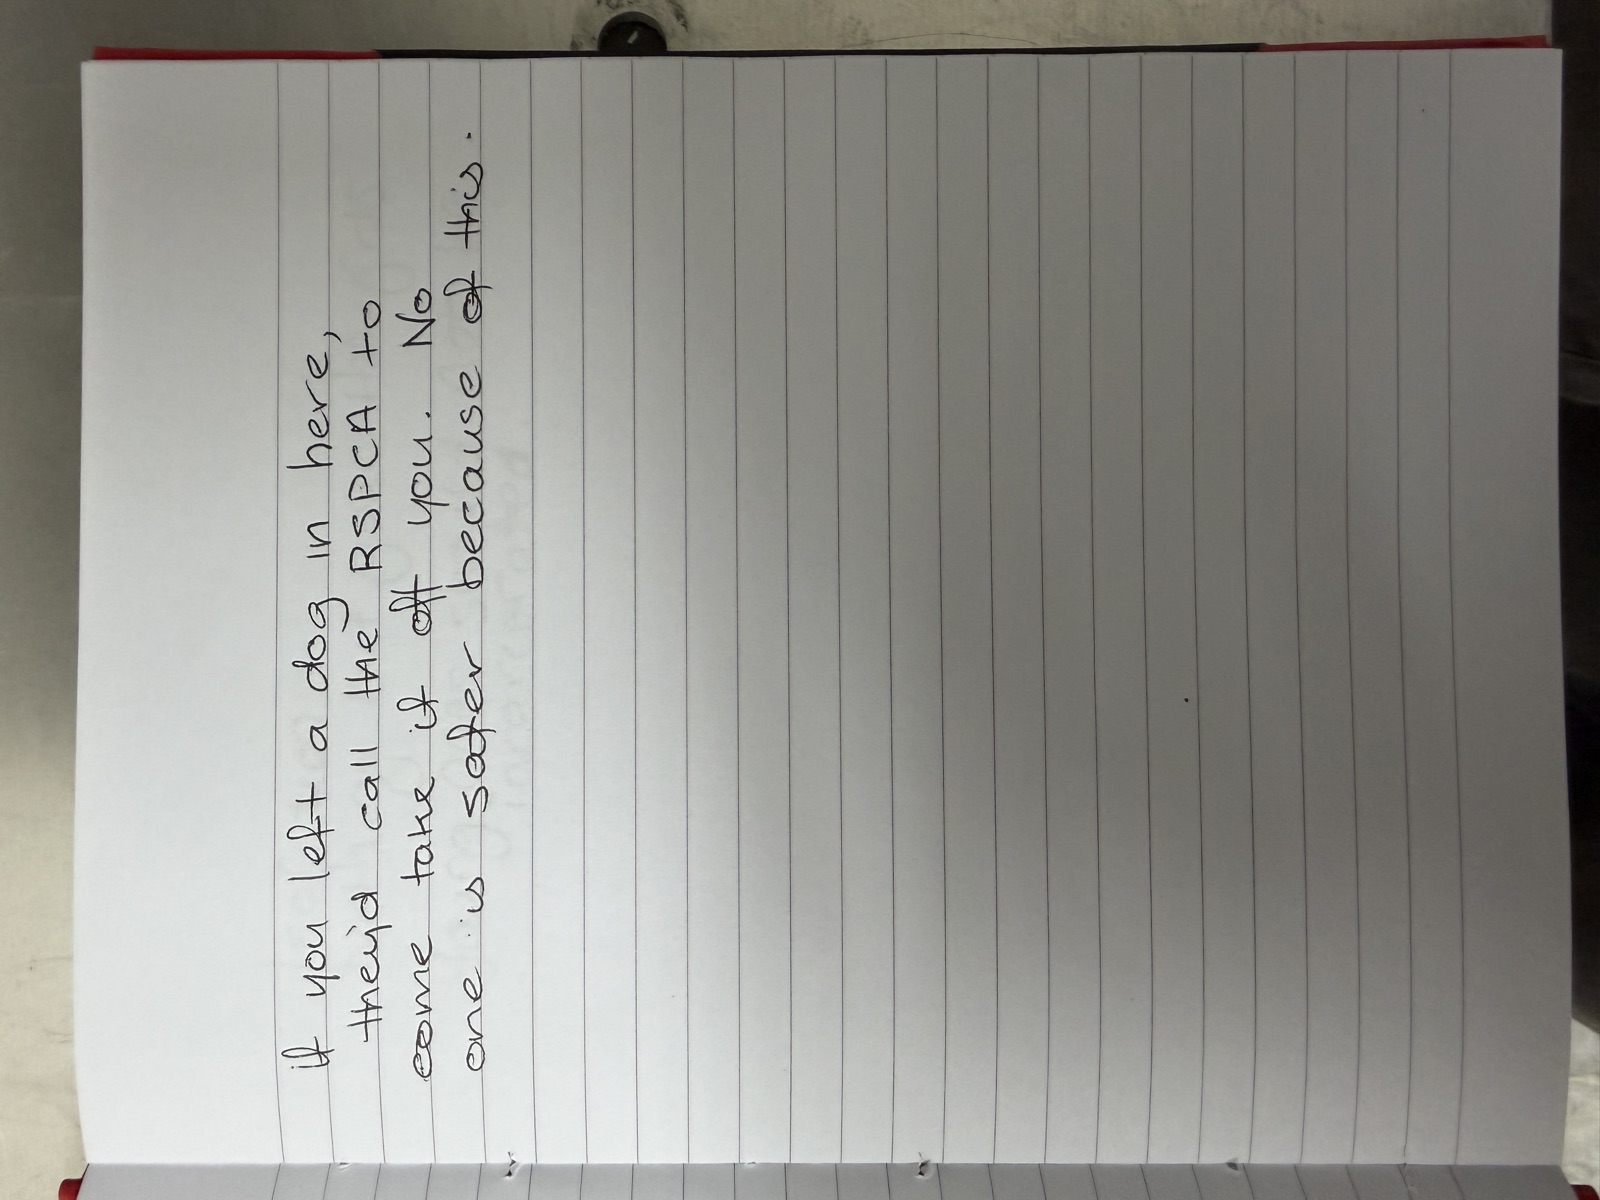 If you left a dog in here,
they'd call the RSPCA to
come take it off you. No
one is safer because of this.